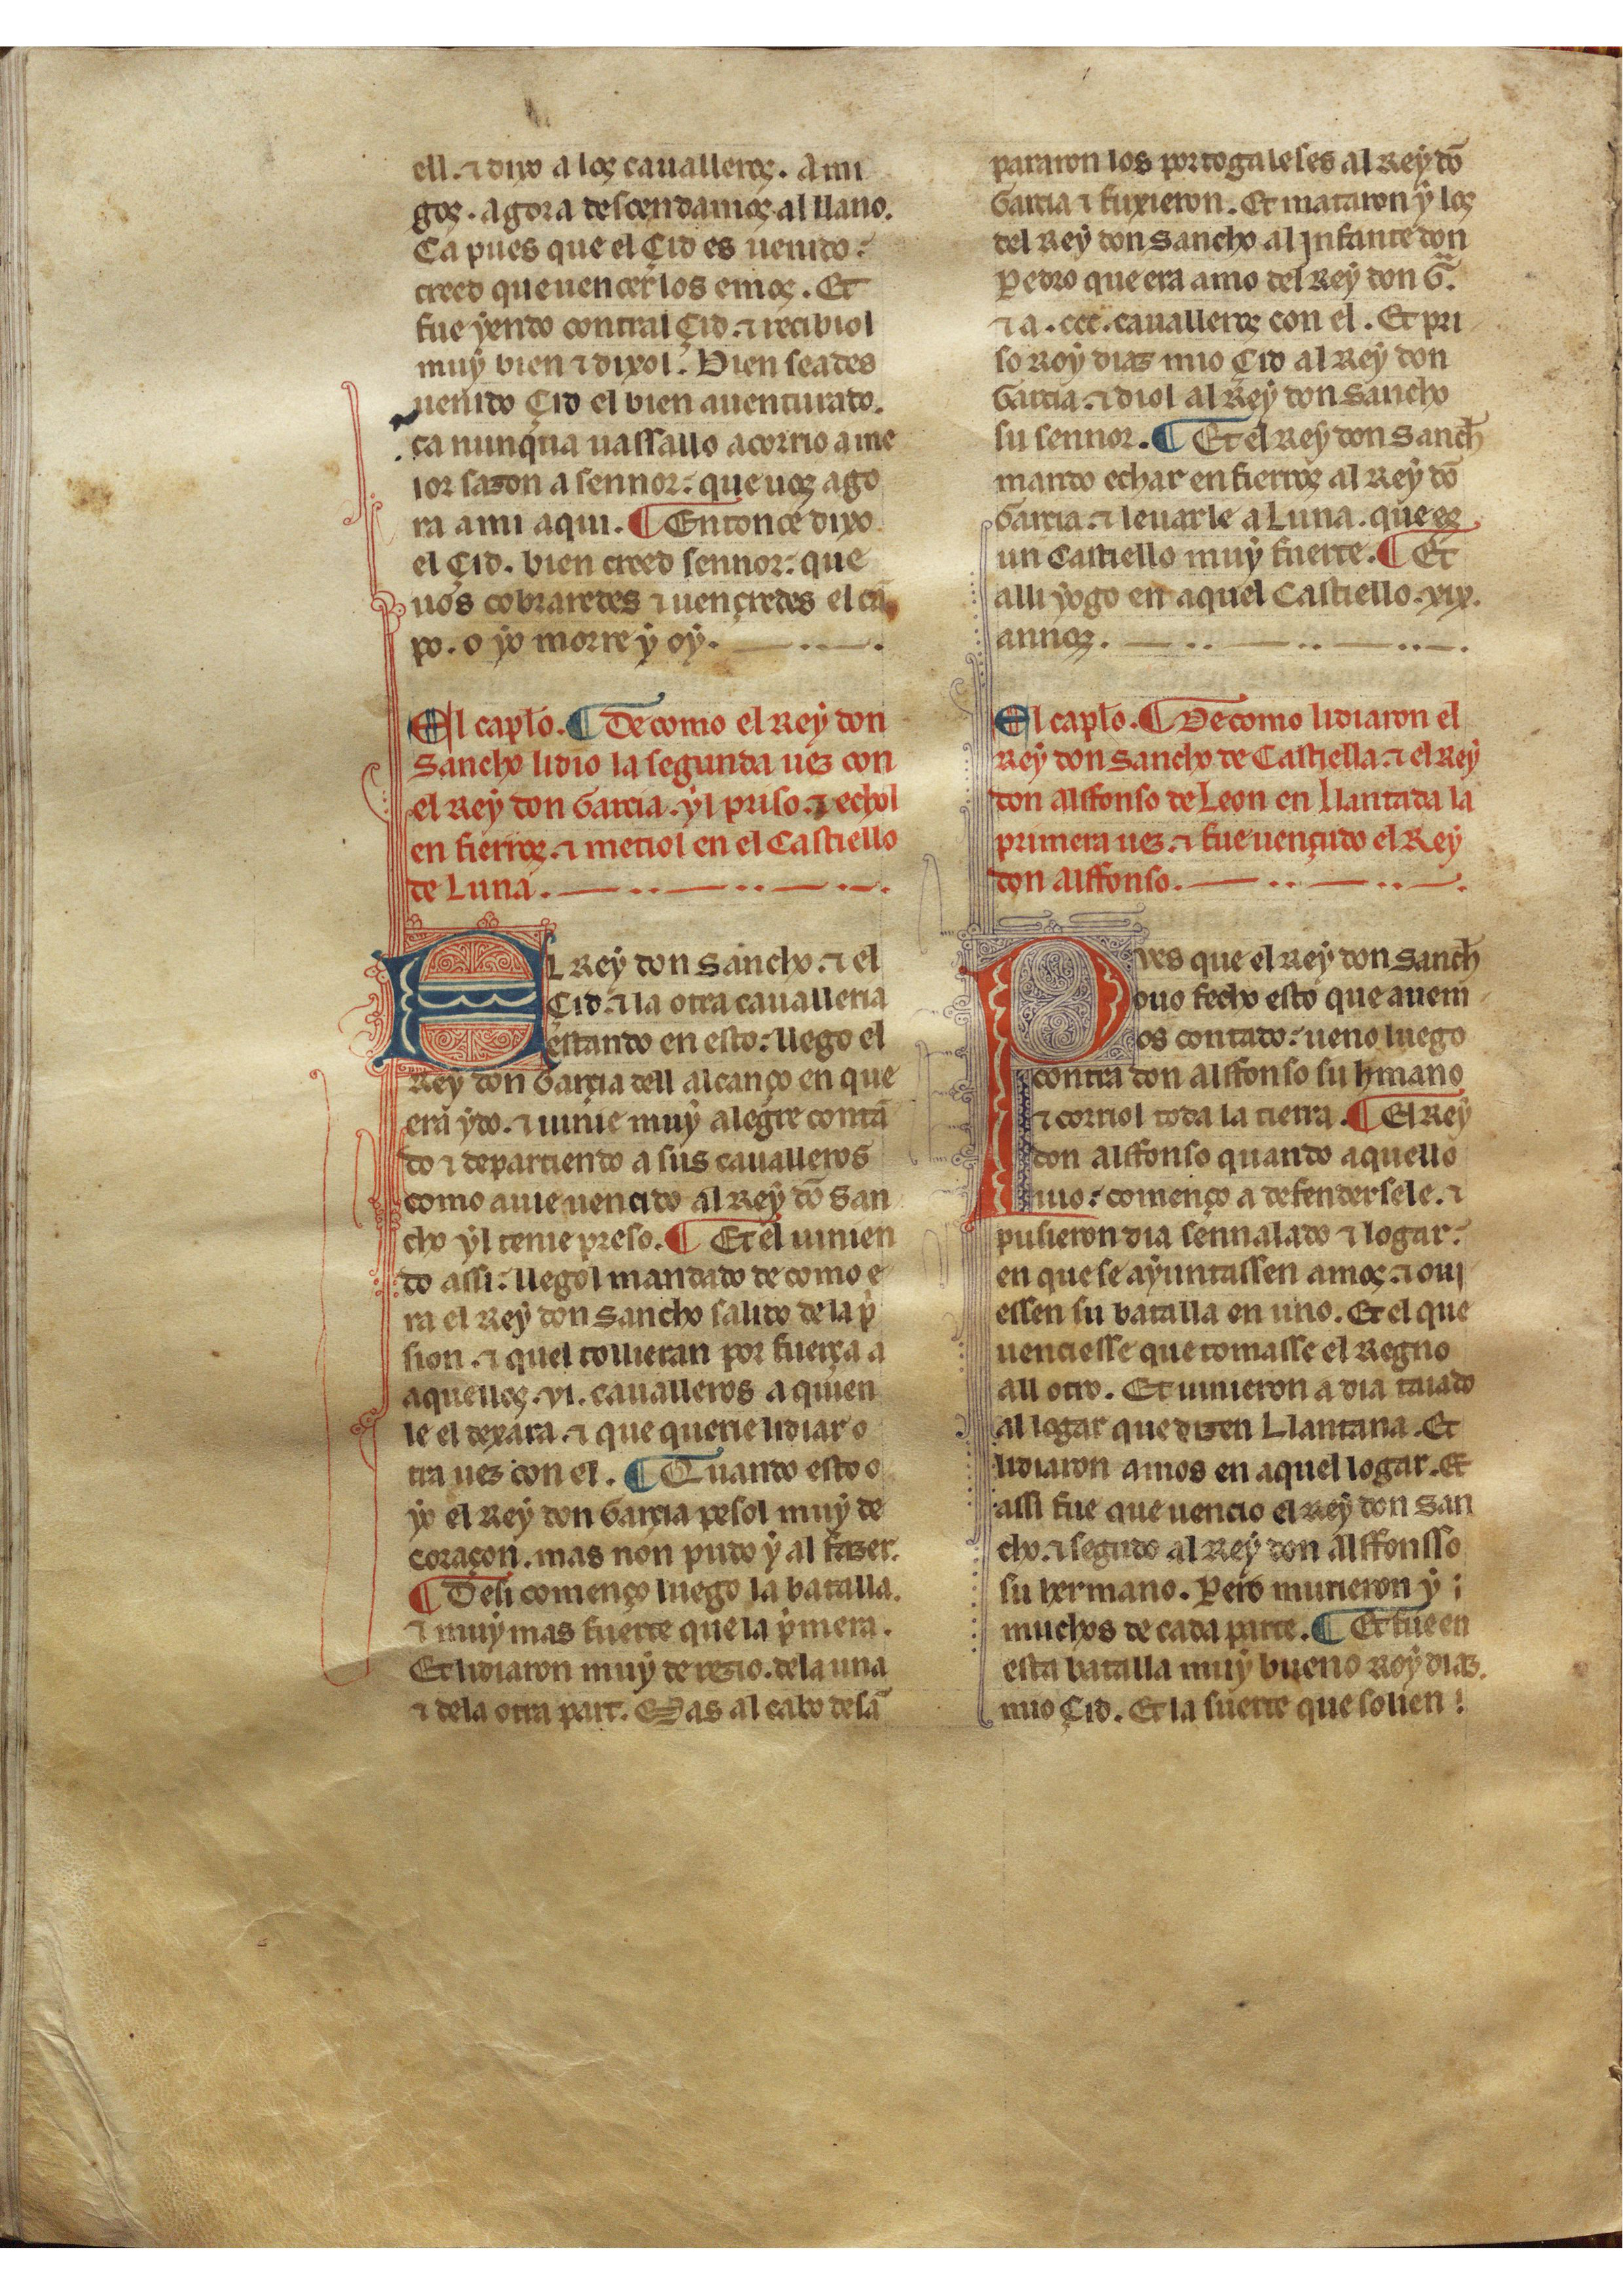 ell. ⁊ dixo a los caualleros. Ami
gos. agora descendamos al llano.
Ca pues que el Çid es uenido:
creed que uencer los emos. Et
fue yendo contral Çid. ⁊ recibiol
muy bien ⁊ dixol. Bien seades
uenido Çid el bien auenturado.
ca nunqua uassallo acorrio a me
ior sazon a sennor: que uos ago
ra a mi aqui. ¶ Entonce dixo
el Çid. bien creed sennor: que
uos cobraredes ⁊ uençredes el cã
po. o yo morre y oy.
El caplo. ¶ De como el Rey don
Sancho lidio la segunda uez con
el Rey don Garcia. yl priso. ⁊ echol
en fierros. ⁊ metiol en el Castiello
de Luna.
El Rey don Sancho. ⁊ el
Çid. ⁊ la otra caualleria
estando en esto: llego el
Rey don Garçia dell alcanço en que
era ydo. ⁊ uinie muy alegre contã
do ⁊ departiendo a sus caualleros
como auie uencido al Rey dõ San
cho yl tenie preso. ¶ Et el uinien
do assi: llegol mandado de como e
ra el Rey don Sancho salido de la p̃
sion. ⁊ quel tollieran por fuerça a
aquellos .vi. caualleros a quien
le el dexara. ⁊ que querie lidiar o
tra uez con el. ¶ Quando esto o
yo el Rey don Garçia pesol muy de
coraçon. mas non pudo y al fazer.
¶ Desi començo luego la batalla.
⁊ muy mas fuerte que la p̃mera.
Et lidiaron muy de rezio. de la una
⁊ de la otra part. Mas al cabo desã
pararon los portogaleses al Rey dõ
Garcia ⁊ fuxieron. Et mataron y los
del Rey don Sancho al Jnfante don
Pedro que era amo del Rey don Gª.
⁊ a .ccc. caualleros con el. Et pri
so Roy diaz mio Çid al Rey don
Garcia. ⁊ diol al Rey don Sancho
su sennor. ¶ Et el Rey don Sanch̃
mando echar en fierros al Rey dõ
Garcia. ⁊ leuarle a Luna. que es
un Castiello muy fuerte. ¶ Et
alli yogo en aquel Castiello .xix.
annos.
El caplo. ¶ De como lidiaron el
Rey don Sancho de Castiella. ⁊ el Rey
don Alffonso de Leon en Llantada la
primera uez. ⁊ fue uençudo el Rey
don Alffonso.
Pves que el Rey don Sanch̃
ouo fecho esto que auem
os contado: ueno luego
contra don Alffonso su hm̃ano
⁊ corriol toda la tierra. ¶ El Rey
don Alffonso quando aquello
uio: començo a defendersele. ⁊
pusieron dia sennalado ⁊ logar:
en que se ayuntassen amos. ⁊ oui
essen su batalla en uno. Et el que
uenciesse que tomasse el Regno
all otro. Et uinieron a dia taiado
al logar que dizen Llantana. Et
lidiaron amos en aquel logar. Et
assi fue que uencio el Rey don San
cho. ⁊ segudo al Rey don Alffonsso
su hermano. Pero murieron y
muchos de cada parte. ¶ Et fue en
esta batalla muy bueno Roy diaz.
mio Çid. Et la suerte que solien